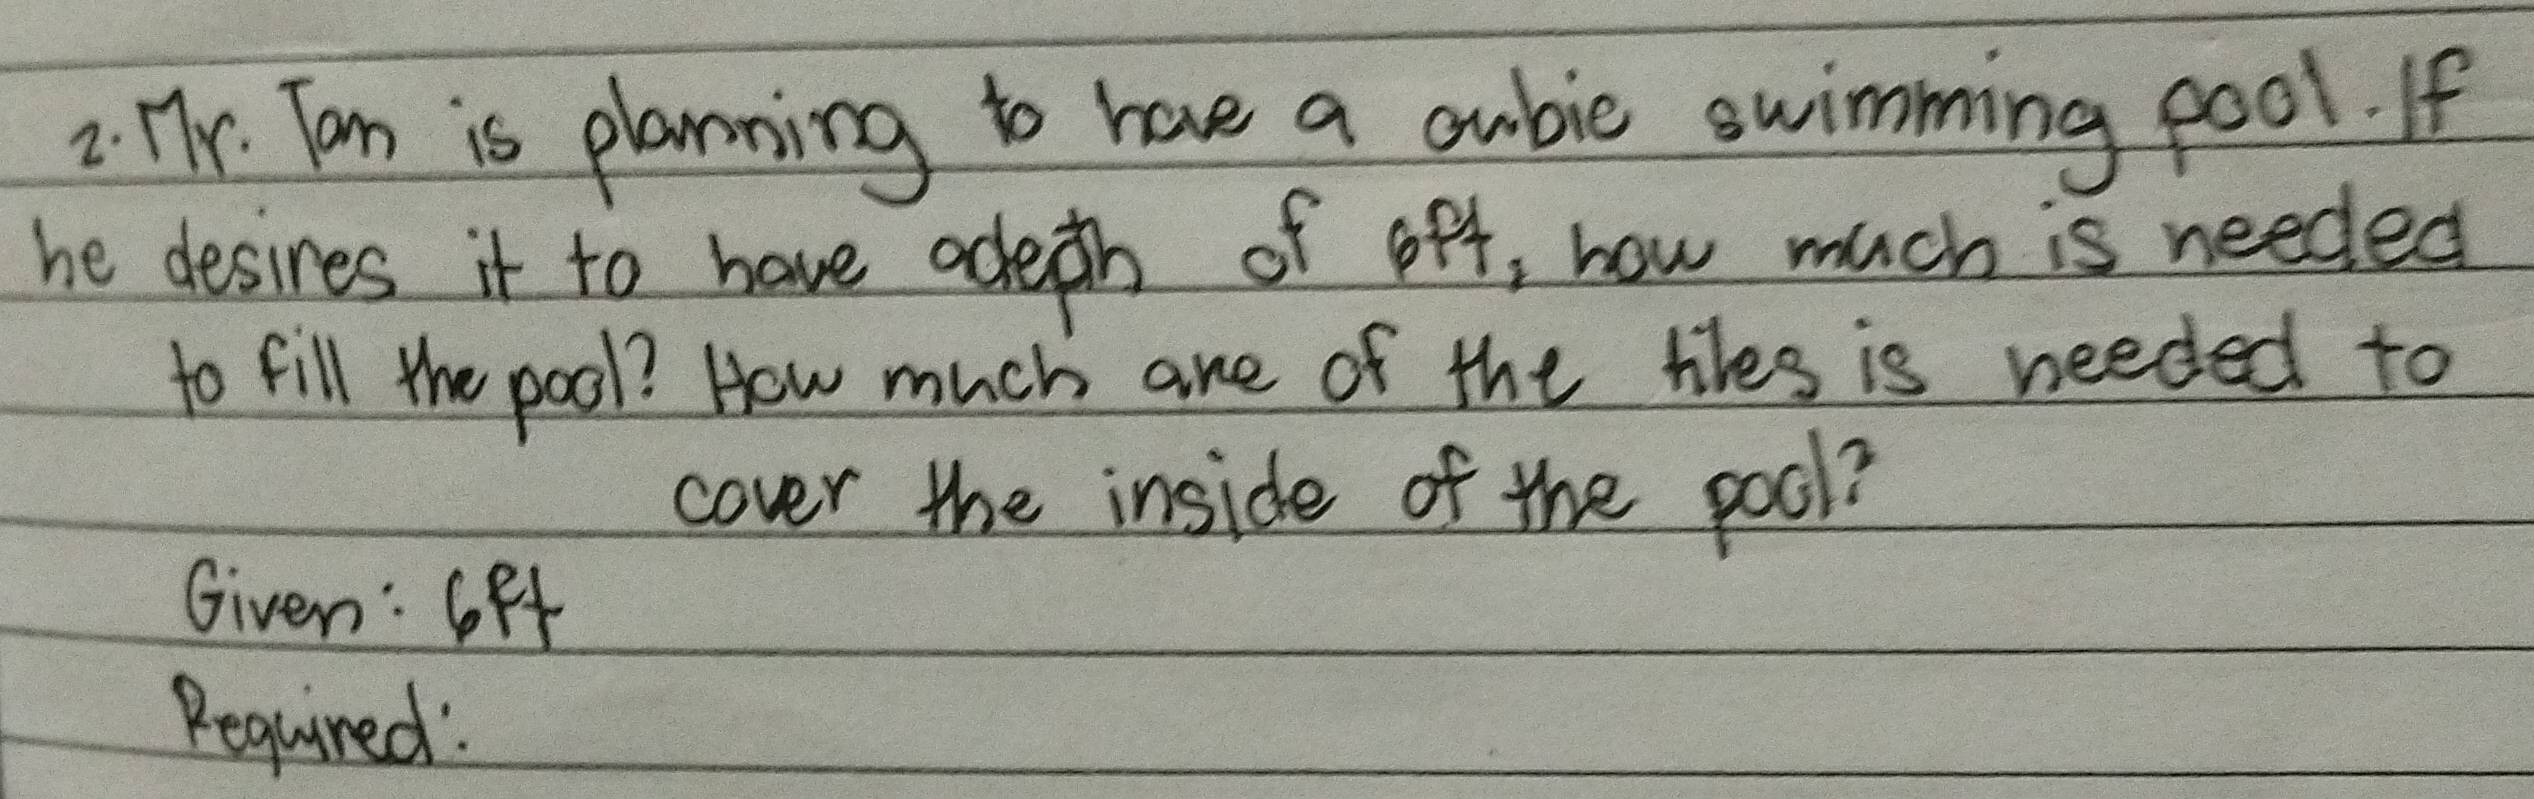 2. Mr. Tan is planning to have a cubic swimming pool. If
he desires it to have adepth of 6ft, how much is needed
to fill the pool? How much are of the tiles is needed to
cover the inside of the pool?
Given: 6ft
Required: